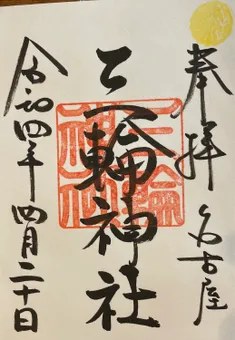 奉拝 名古屋
三輪神社
三輪神社
令和四年 四月二十日